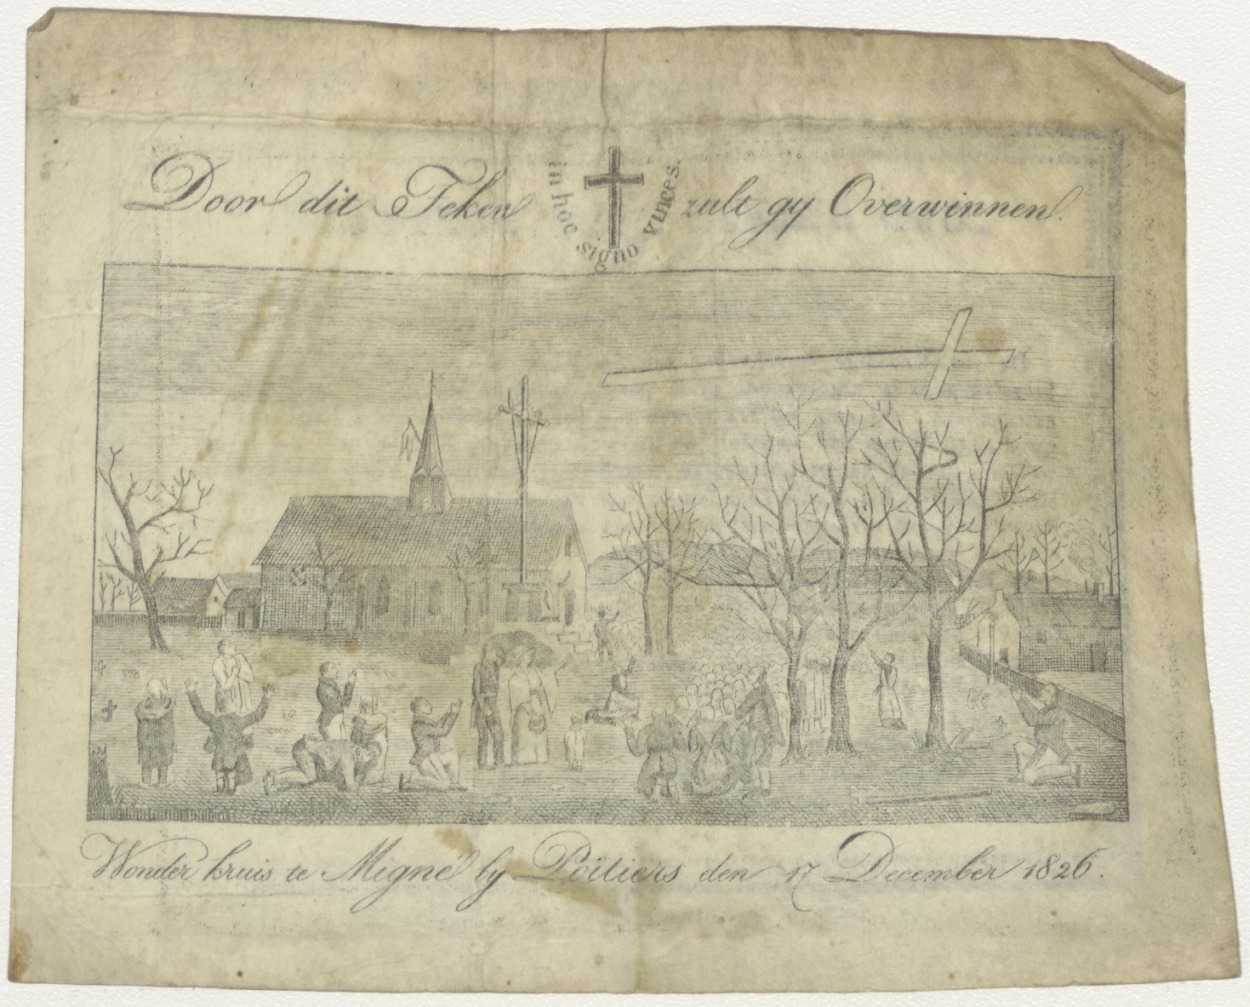 Door dit Teken zult gy Overwinnen.
in hoc signo vinces.
Wonder kruis te Migné by Poïtiers den 17 December 1826.